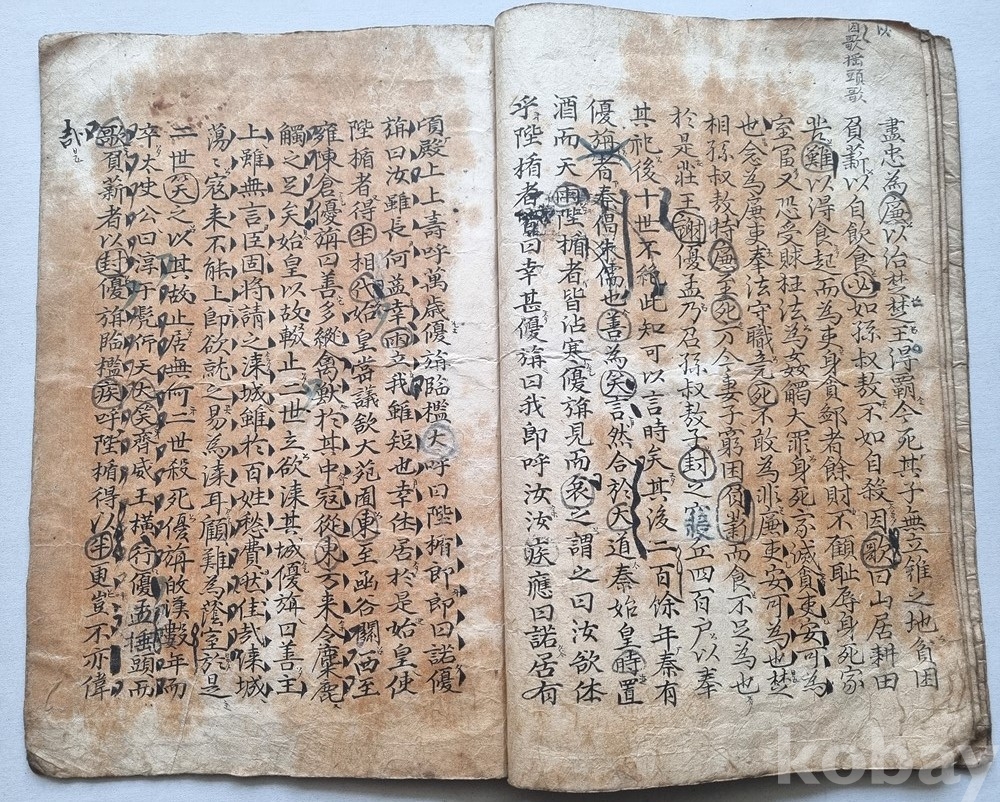 因歌搖頭歌
以
盡忠為廉以治楚楚王得覇今死其子無立錐之地負困
負薪以自飮食必如孫叔敖不如自殺因歌曰山居耕田
苦難以得食起而為吏身貪鄙者餘財不顧耻辱身死家
室富又恐受賕枉法為姦觸大罪身死家滅貪吏安可為
也念為廉吏奉法守職竟死不敢為非廉吏安可為也楚
相孫叔敖持廉至死方今妻子窮困負薪而食不足為也
於是莊王謝優孟乃召孫叔敖子封之寢丘四百戶以奉
其祀後十世不絕此知可以言時矣其後二百餘年秦有
優旃者秦倡朱儒也善為笑言然合於大道秦始皇時置
酒而天雨陛楯者皆沾寒優旃見而哀之謂之曰汝欲休
乎陛楯者皆曰幸甚優旃曰我即呼汝汝疾應曰諾居有
頃殿上上壽呼萬歲優旃臨檻大呼曰陛楯郎郎曰諾優
旃曰汝雖長何益幸雨立我雖短也幸休居於是始皇使
陛楯者得半相代始皇嘗議欲大苑囿東至函谷關西至
雍陳倉優旃曰善多縱禽獸於其中寇從東方來令麋鹿
觸之足矣始皇以故輟止二世立欲漆其城優旃曰善主
上雖無言臣固將請之漆城雖於百姓愁費然佳哉漆城
蕩蕩寇來不能上即欲就之易為漆耳顧難為蔭室於是
二世笑之以其故止居無何二世殺死優旃歸漢數年而
卒太史公曰淳于髡仰天大笑齊威王橫行優孟搖頭而
歌負薪者以封優旃臨檻疾呼陛楯得以半更豈不亦偉
哉
kobay